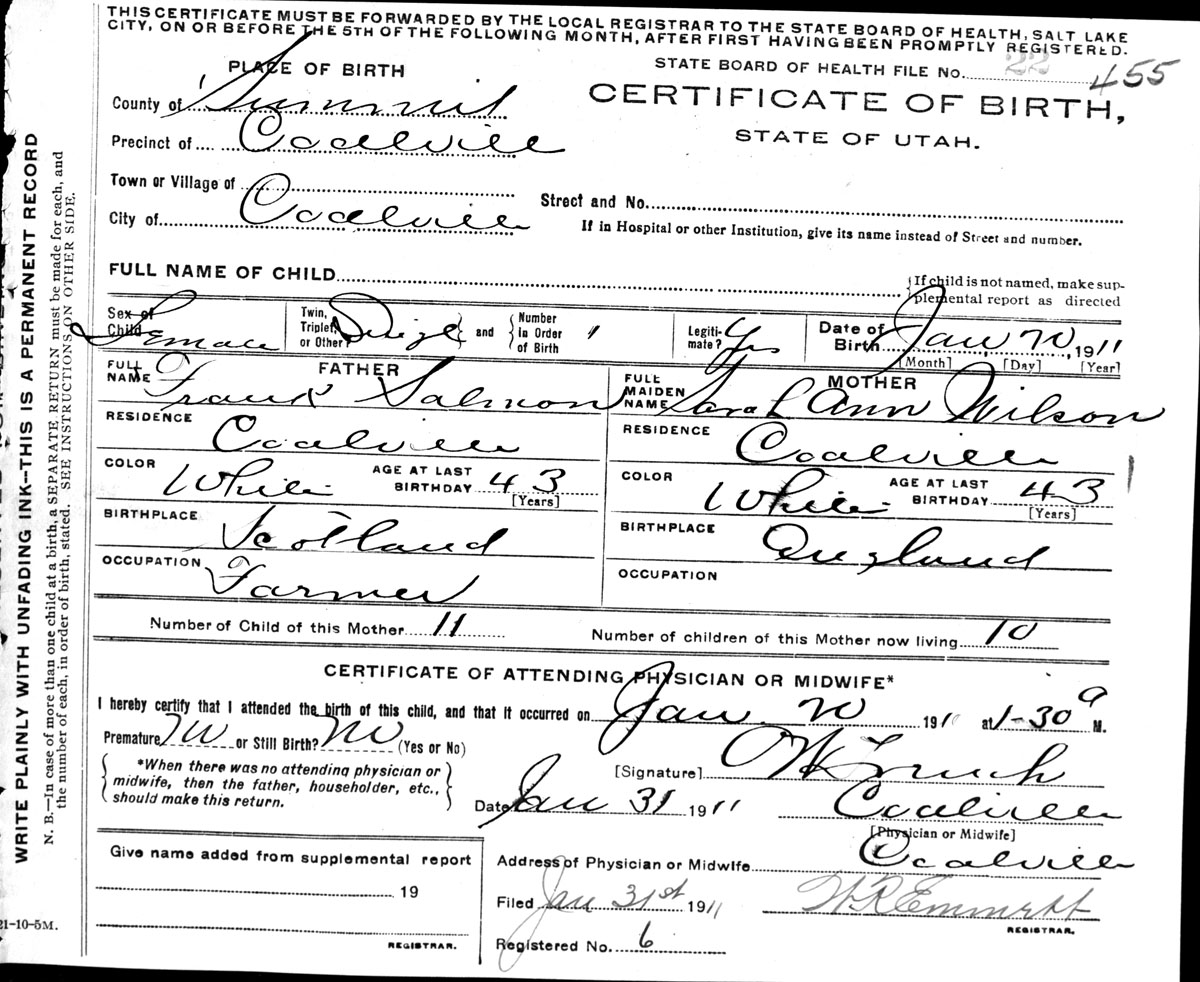 THIS CERTIFICATE MUST BE FORWARDED BY THE LOCAL REGISTRAR TO THE STATE BOARD OF HEALTH, SALT LAKE
CITY, ON OR BEFORE THE 5TH OF THE FOLLOWING MONTH, AFTER FIRST HAVING BEEN PROMPTLY REGISTERED.
PLACE OF BIRTH
STATE BOARD OF HEALTH FILE No. 22 455
County of Summit
CERTIFICATE OF BIRTH,
Precinct of Coalville
STATE OF UTAH.
Town or Village of
Street and No.
City of Coalville
If in Hospital or other Institution, give its name instead of Street and number.
FULL NAME OF CHILD
If child is not named, make sup-
plemental report as directed
Sex of Child Female
Twin, Triplet, or Other? Single and Number in Order of Birth
Legiti-mate? Yes
Date of Birth Jan, 20, 1911
[Month] [Day] [Year]
FATHER
FULL NAME Frank Salmon
MOTHER
FULL MAIDEN NAME Sarah Ann Wilson
RESIDENCE Coalville
RESIDENCE Coalville
COLOR White AGE AT LAST BIRTHDAY 43 [Years]
COLOR White AGE AT LAST BIRTHDAY 43 [Years]
BIRTHPLACE Scotland
BIRTHPLACE England
OCCUPATION Farmer
OCCUPATION
Number of Child of this Mother 11
Number of children of this Mother now living 10
CERTIFICATE OF ATTENDING PHYSICIAN OR MIDWIFE*
I hereby certify that I attended the birth of this child, and that it occurred on Jan 20 1911 at 1-30 a M.
Premature No or Still Birth? No (Yes or No)
*When there was no attending physician or
midwife, then the father, householder, etc.,
should make this return.
[Signature]
Date Jan 31 1911
Coalville
[Physician or Midwife]
Give name added from supplemental report
19
REGISTRAR.
Address of Physician or Midwife Coalville
Filed Jan 31st 1911
W R Emmett
REGISTRAR.
Registered No. 6
21-10-5M.
WRITE PLAINLY WITH UNFADING INK--THIS IS A PERMANENT RECORD
N. B.—In case of more than one child at a birth, a SEPARATE RETURN must be made for each, and
the number of each, in order of birth, stated. SEE INSTRUCTIONS ON OTHER SIDE.